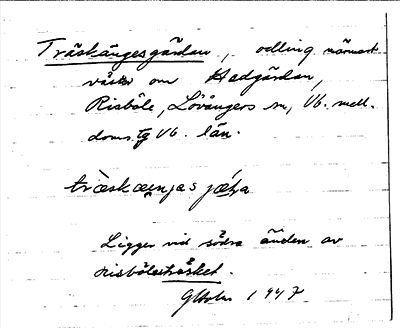 Träskängesgärdan, odling närmast
väster om Hedgärdan,
Risböle, Lövångers sn, Vb. mell.
doms. tg Vb. län.
träskæŋjas jæḷa
Ligger vid södra änden av
Risböleträsket.
GHolm 1947